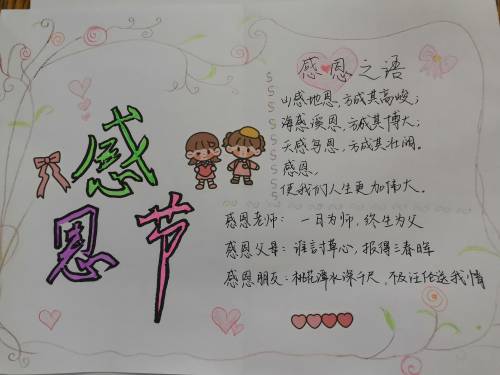 感
恩
节
感恩之语
山感地恩，方成其高峻；
海感溪恩，方成其博大；
天感鸟恩，方成其壮阔。
感恩，
使我们人生更加伟大。
感恩老师：一日为师，终生为父
感恩父母：谁言寸草心，报得三春晖
感恩朋友：桃花潭水深千尺，不及汪伦送我情